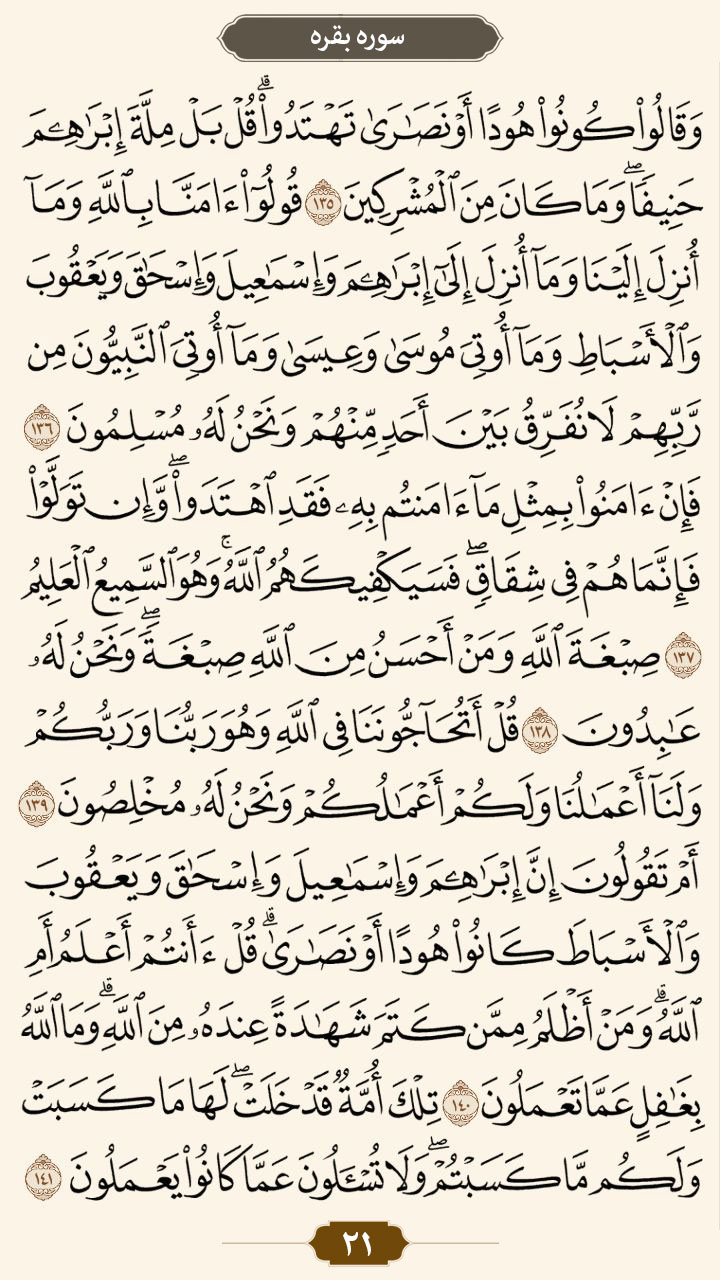 سوره بقره
وَقَالُوا۟ كُونُوا۟ هُودًا أَوْ نَصَـٰرَىٰ تَهْتَدُوا۟ ۗ قُلْ بَلْ مِلَّةَ إِبْرَٰهِـۧمَ
حَنِيفًا ۖ وَمَا كَانَ مِنَ ٱلْمُشْرِكِينَ ١٣٥ قُولُوٓا۟ ءَامَنَّا بِٱللَّهِ وَمَآ
أُنزِلَ إِلَيْنَا وَمَآ أُنزِلَ إِلَىٰٓ إِبْرَٰهِـۧمَ وَإِسْمَـٰعِيلَ وَإِسْحَـٰقَ وَيَعْقُوبَ
وَٱلْأَسْبَاطِ وَمَآ أُوتِىَ مُوسَىٰ وَعِيسَىٰ وَمَآ أُوتِىَ ٱلنَّبِيُّونَ مِن
رَّبِّهِمْ لَا نُفَرِّقُ بَيْنَ أَحَدٍ مِّنْهُمْ وَنَحْنُ لَهُۥ مُسْلِمُونَ ١٣٦
فَإِنْ ءَامَنُوا۟ بِمِثْلِ مَآ ءَامَنتُم بِهِۦ فَقَدِ ٱهْتَدَوا۟ ۖ وَّإِن تَوَلَّوْا۟
فَإِنَّمَا هُمْ فِى شِقَاقٍ ۖ فَسَيَكْفِيكَهُمُ ٱللَّهُ ۚ وَهُوَ ٱلسَّمِيعُ ٱلْعَلِيمُ
١٣٧ صِبْغَةَ ٱللَّهِ وَمَنْ أَحْسَنُ مِنَ ٱللَّهِ صِبْغَةً ۖ وَنَحْنُ لَهُۥ
عَـٰبِدُونَ ١٣٨ قُلْ أَتُحَآجُّونَنَا فِى ٱللَّهِ وَهُوَ رَبُّنَا وَرَبُّكُمْ
وَلَنَآ أَعْمَـٰلُنَا وَلَكُمْ أَعْمَـٰلُكُمْ وَنَحْنُ لَهُۥ مُخْلِصُونَ ١٣٩
أَمْ تَقُولُونَ إِنَّ إِبْرَٰهِـۧمَ وَإِسْمَـٰعِيلَ وَإِسْحَـٰقَ وَيَعْقُوبَ
وَٱلْأَسْبَاطَ كَانُوا۟ هُودًا أَوْ نَصَـٰرَىٰ ۗ قُلْ ءَأَنتُمْ أَعْلَمُ أَمِ
ٱللَّهُ ۗ وَمَنْ أَظْلَمُ مِمَّن كَتَمَ شَهَـٰدَةً عِندَهُۥ مِنَ ٱللَّهِ ۗ وَمَا ٱللَّهُ
بِغَـٰفِلٍ عَمَّا تَعْمَلُونَ ١٤٠ تِلْكَ أُمَّةٌ قَدْ خَلَتْ ۖ لَهَا مَا كَسَبَتْ
وَلَكُم مَّا كَسَبْتُمْ ۖ وَلَا تُسْـَٔلُونَ عَمَّا كَانُوا۟ يَعْمَلُونَ ١٤١
٢١